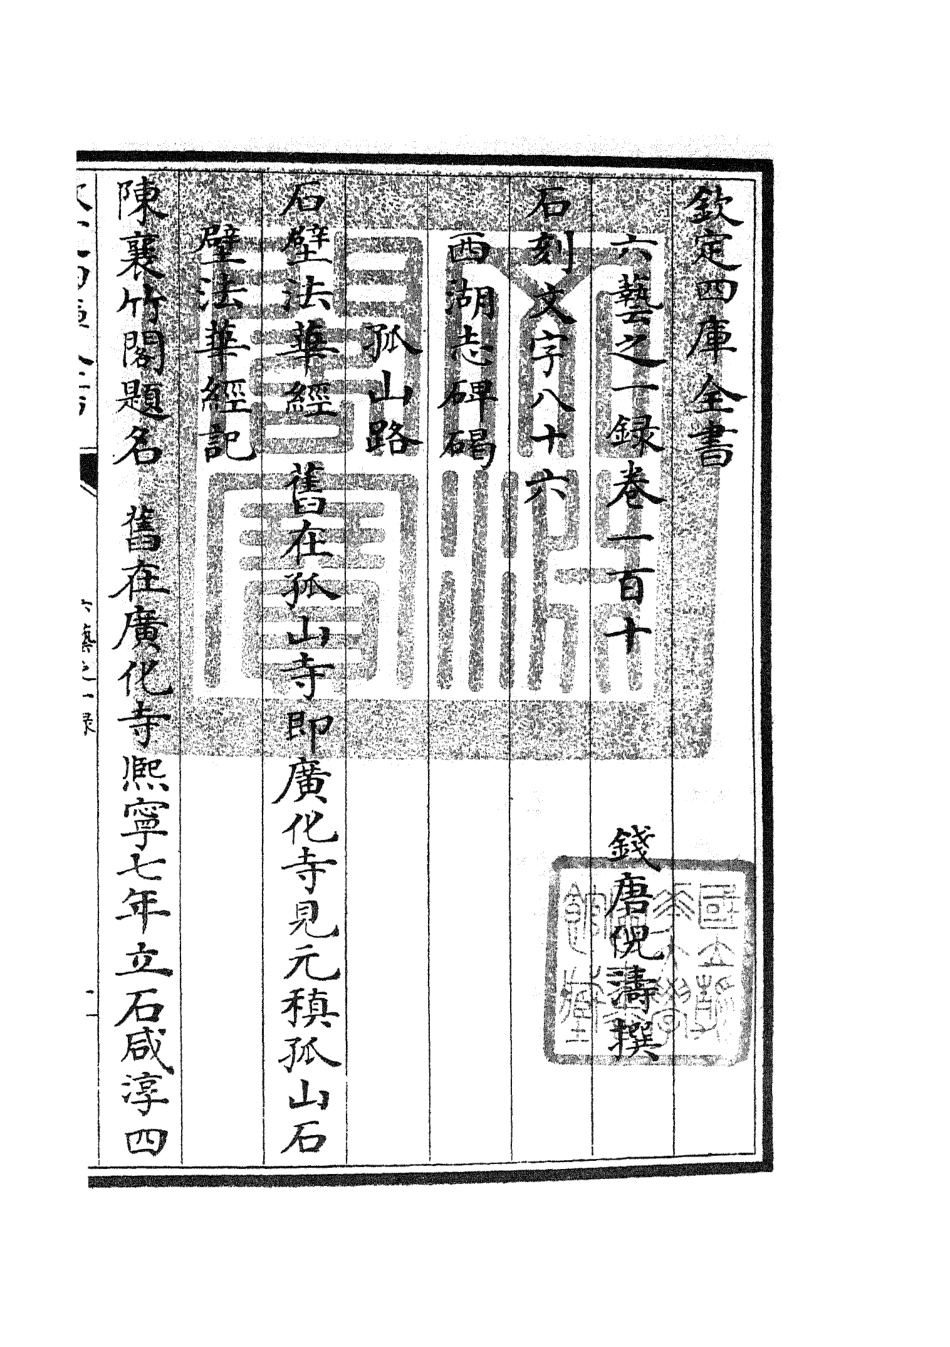 欽定四庫全書
六藝之一録卷一百十
錢唐倪濤撰
石刻文字八十六
西湖志碑碣
孤山路
石壁法華經 舊在孤山寺即廣化寺見元稹孤山石
壁法華經記
陳襄竹閣題名 舊在廣化寺熈寧七年立石咸淳四
六藝之一録